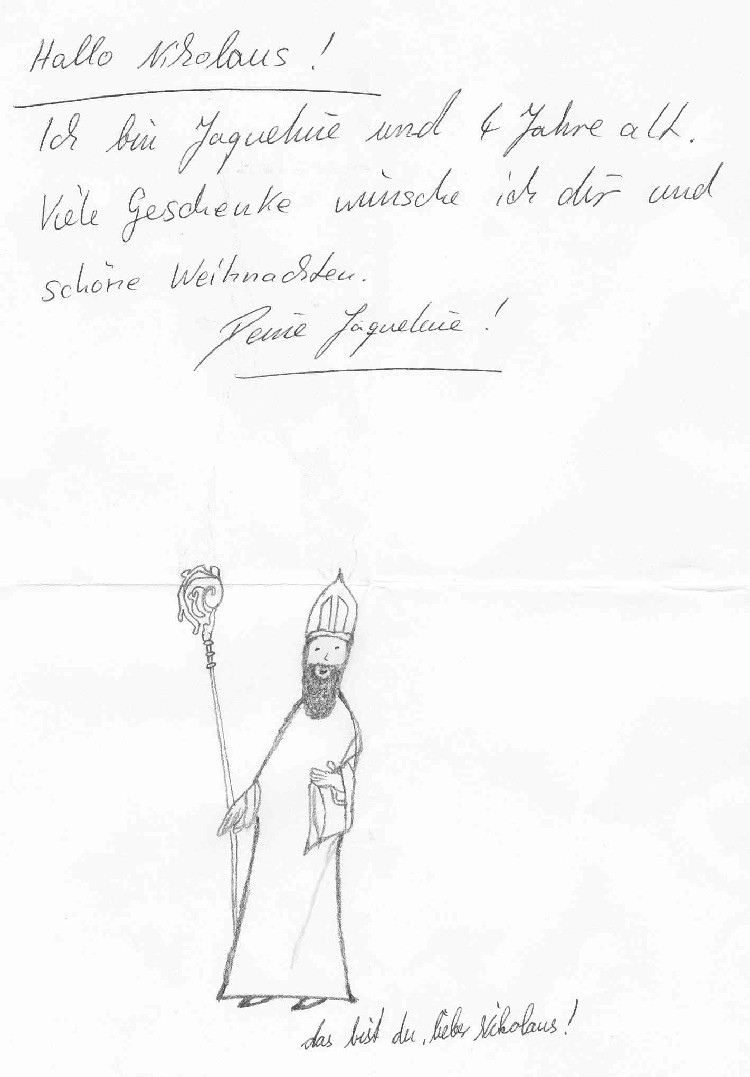 Hallo Nikolaus!
Ich bin Jaqueline und 4 Jahre alt.
Viele Geschenke wünsche ich dir und
schöne Weihnachten.
Deine Jaqueline!
das bist du, lieber Nikolaus!